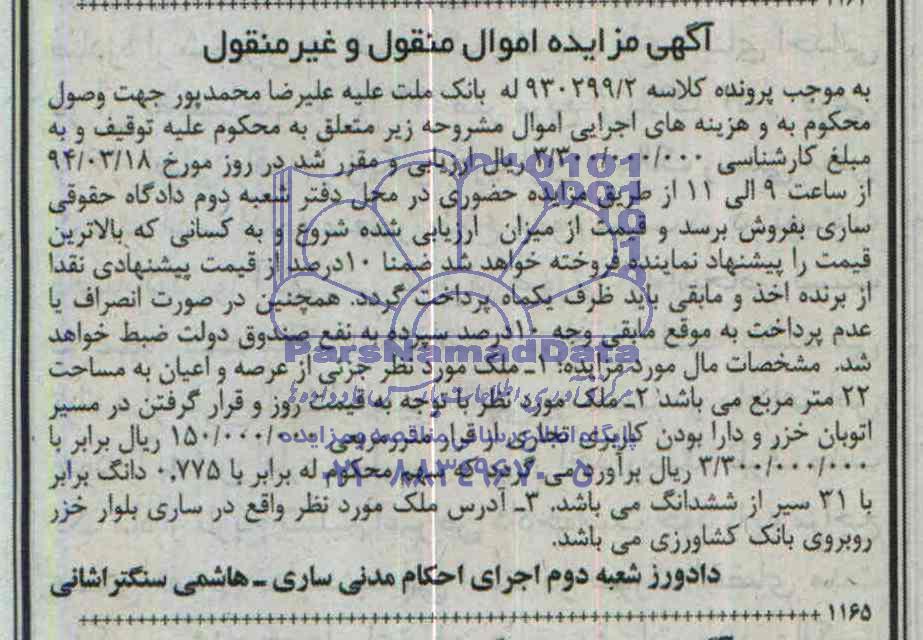 ۱۱۶۴
آگهی مزایده اموال منقول و غیرمنقول
به موجب پرونده کلاسه ۹۳۰۲۹۹/۲ له بانک ملت علیه علیرضا محمدپور جهت وصول
محکوم به و هزینه های اجرایی اموال مشروحه زیر متعلق به محکوم علیه توقیف و به
مبلغ کارشناسی ۳/۳۰۰/۰۰۰/۰۰۰ ریال ارزیابی و مقرر شد در روز مورخ ۹۴/۰۳/۱۸
از ساعت ۹ الی ۱۱ از طریق مزایده حضوری در محل دفتر شعبه دوم دادگاه حقوقی
ساری بفروش برسد و قیمت از میزان ارزیابی شده شروع و به کسانی که بالاترین
قیمت را پیشنهاد نماینده فروخته خواهد شد ضمنا ۱۰درصد از قیمت پیشنهادی نقدا
از برنده اخذ و مابقی باید ظرف یکماه پرداخت گردد. همچنین در صورت انصراف یا
عدم پرداخت به موقع مابقی وجه ۱۰درصد سپرده به نفع صندوق دولت ضبط خواهد
شد. مشخصات مال مورد مزایده: ۱ـ ملک مورد نظر جزئی از عرصه و اعیان به مساحت
۲۲ متر مربع می باشد ۲ـ ملک مورد نظر با توجه به قیمت روز و قرار گرفتن در مسیر
اتوبان خزر و دارا بودن کاربری تجاری از قرار متر مربعی ۱۵۰/۰۰۰/۰۰۰ ریال برابر با
۳/۳۰۰/۰۰۰/۰۰۰ ریال برآورد می گردد که سهم محکوم له برابر با ۰.۷۷۵ دانگ برابر
با ۳۱ سیر از ششدانگ می باشد. ۳ـ آدرس ملک مورد نظر واقع در ساری بلوار خزر
روبروی بانک کشاورزی می باشد.
دادورز شعبه دوم اجرای احکام مدنی ساری ـ هاشمی سنگتراشانی
۱۱۶۵
ParsNamadData
پایگاه اطلاع رسانی مناقصه و مزایده
۰۲۱-۸۸۳۴۹۶۷۰-۵